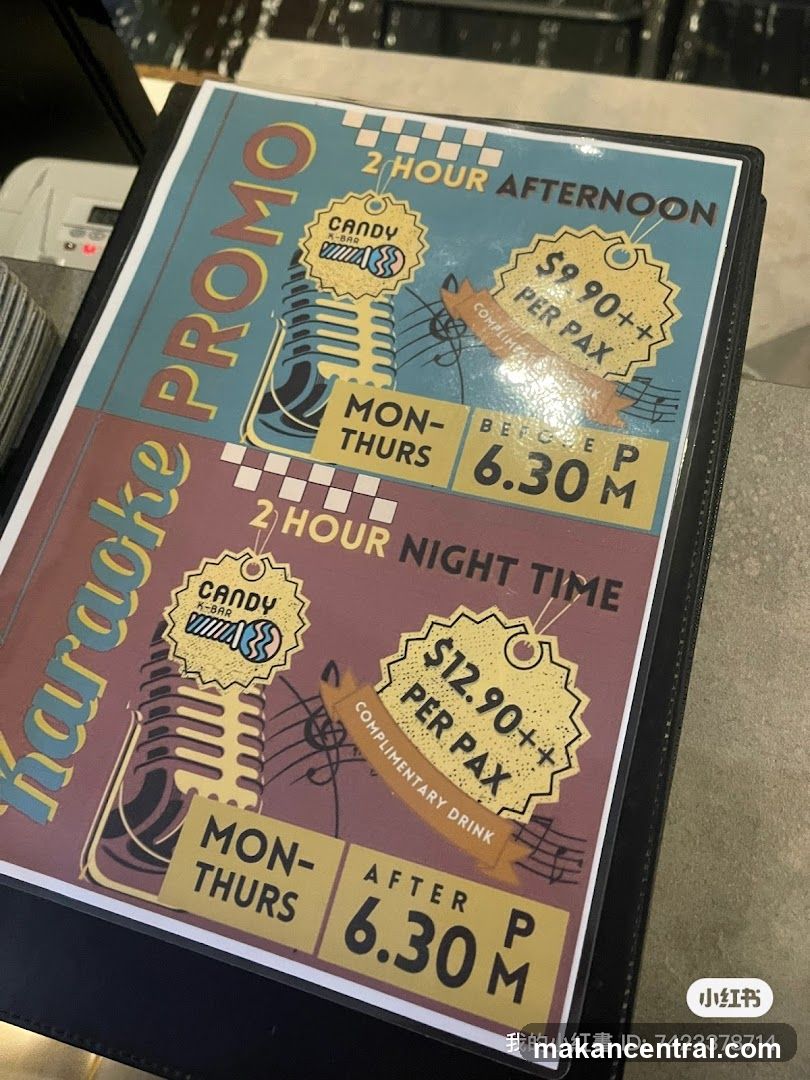 Karaoke PROMO
2 HOUR AFTERNOON
CANDY
K-BAR
$9.90++
PER PAX
MON-
THURS
BEFORE
6.30 PM
2 HOUR NIGHT TIME
CANDY
K-BAR
$12.90++
PER PAX
COMPLIMENTARY DRINK
MON-
THURS
AFTER
6.30 PM
小红书
makancentral.com